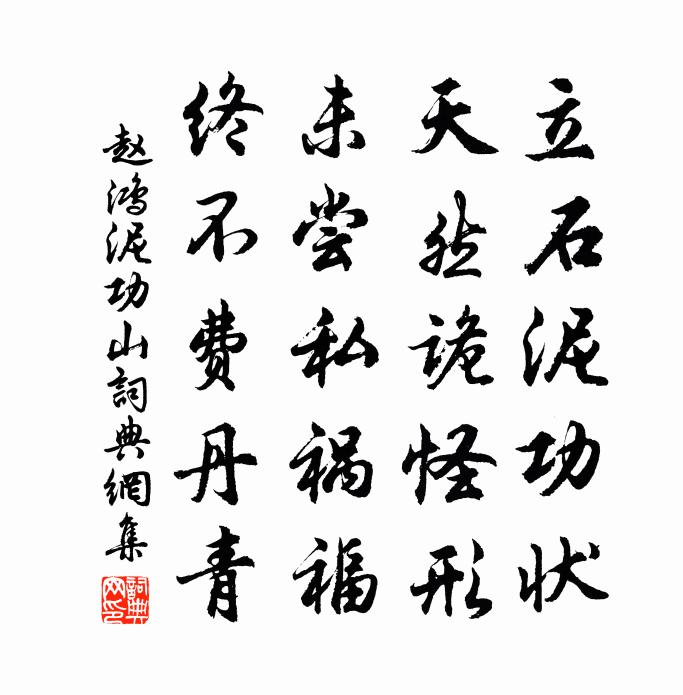 立石泥功状
天然诡怪形
未尝私祸福
终不费丹青
赵鸿泥功山詞典網集
詞典网印